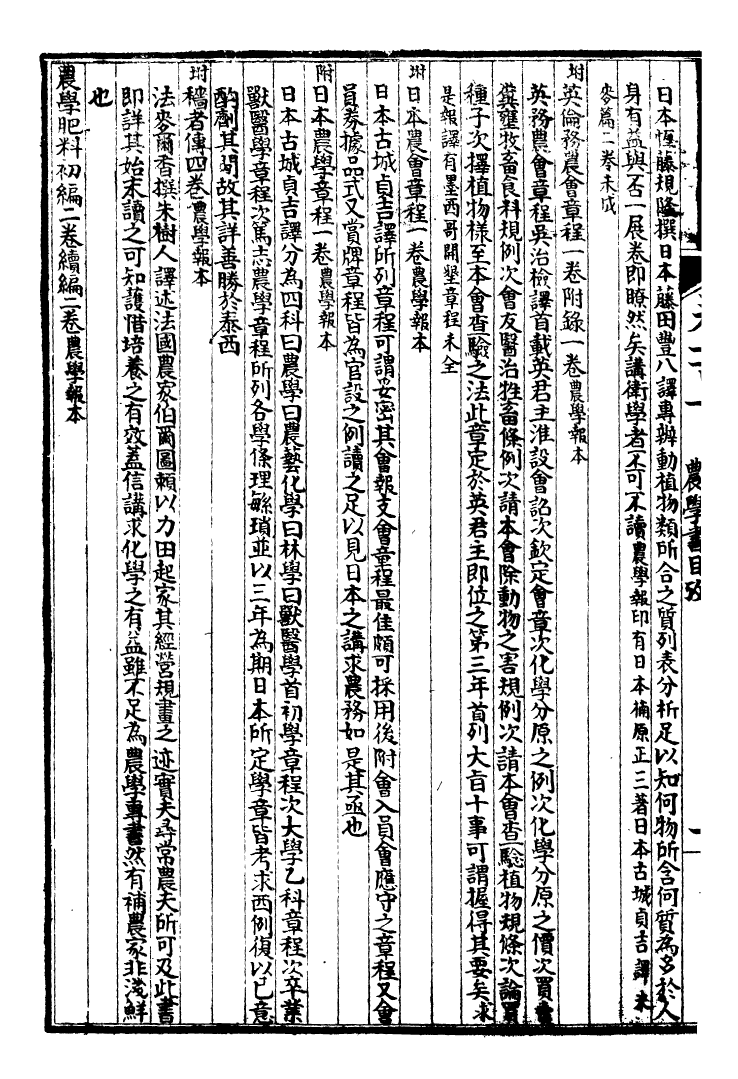 日本恆藤規隆撰日本藤田豐八譯專辦動植物類所合之質列表分析足以知何物所含何質為多於人
身有益與否一展卷即瞭然矣講衛學者不可不讀農學報印有日本楠原正三著日本古城貞吉譯未
麥篇二卷未成
坿英倫務農會章程一卷附錄一卷農學報本
英務農會章程吳治檢譯首載英君主准設會詔次欽定會章次化學分原之例次化學分原之價次買
糞壅牧畜食料規例次會友醫治牲畜條例次請本會除動物之害規例次請本會查驗植物規條次論買
種子次擇植物樣至本會查驗之法此章定於英君主即位之第三年首列大旨十事可謂握得其要矣求
是報譯有墨西哥開墾章程未全
坿日本農會章程一卷農學報本
日本古城貞吉譯所列章程可謂妥密其會報支會章程最佳頗可採用後附會入員會應守之章程又會
員券據品式又賞牌章程皆為官設之例讀之足以見日本之講求農務如是其亟也
附日本農學章程一卷農學報本
日本古城貞吉譯分為四科曰農學曰農藝化學曰林學曰獸醫學首初學章程次大學乙科章程次卒業
獸醫學章程次篤志農學章程所列各學條理緐瑣並以三年為期日本所定學章皆考求西例復以己意
酌劑其間故其詳善勝於泰西
坿穡者傳四卷農學報本
法麥爾香撰朱樹人譯述法國農家伯爾圖賴以力田起家其經營規畫之迹實夫尋常農夫所可及此書
即詳其始末讀之可知護惜培養之有效蓋信講求化學之有益雖不足為農學專書然有補農家非淺鮮
也
農學肥料初編二卷續編二卷農學報本
農學書目攷